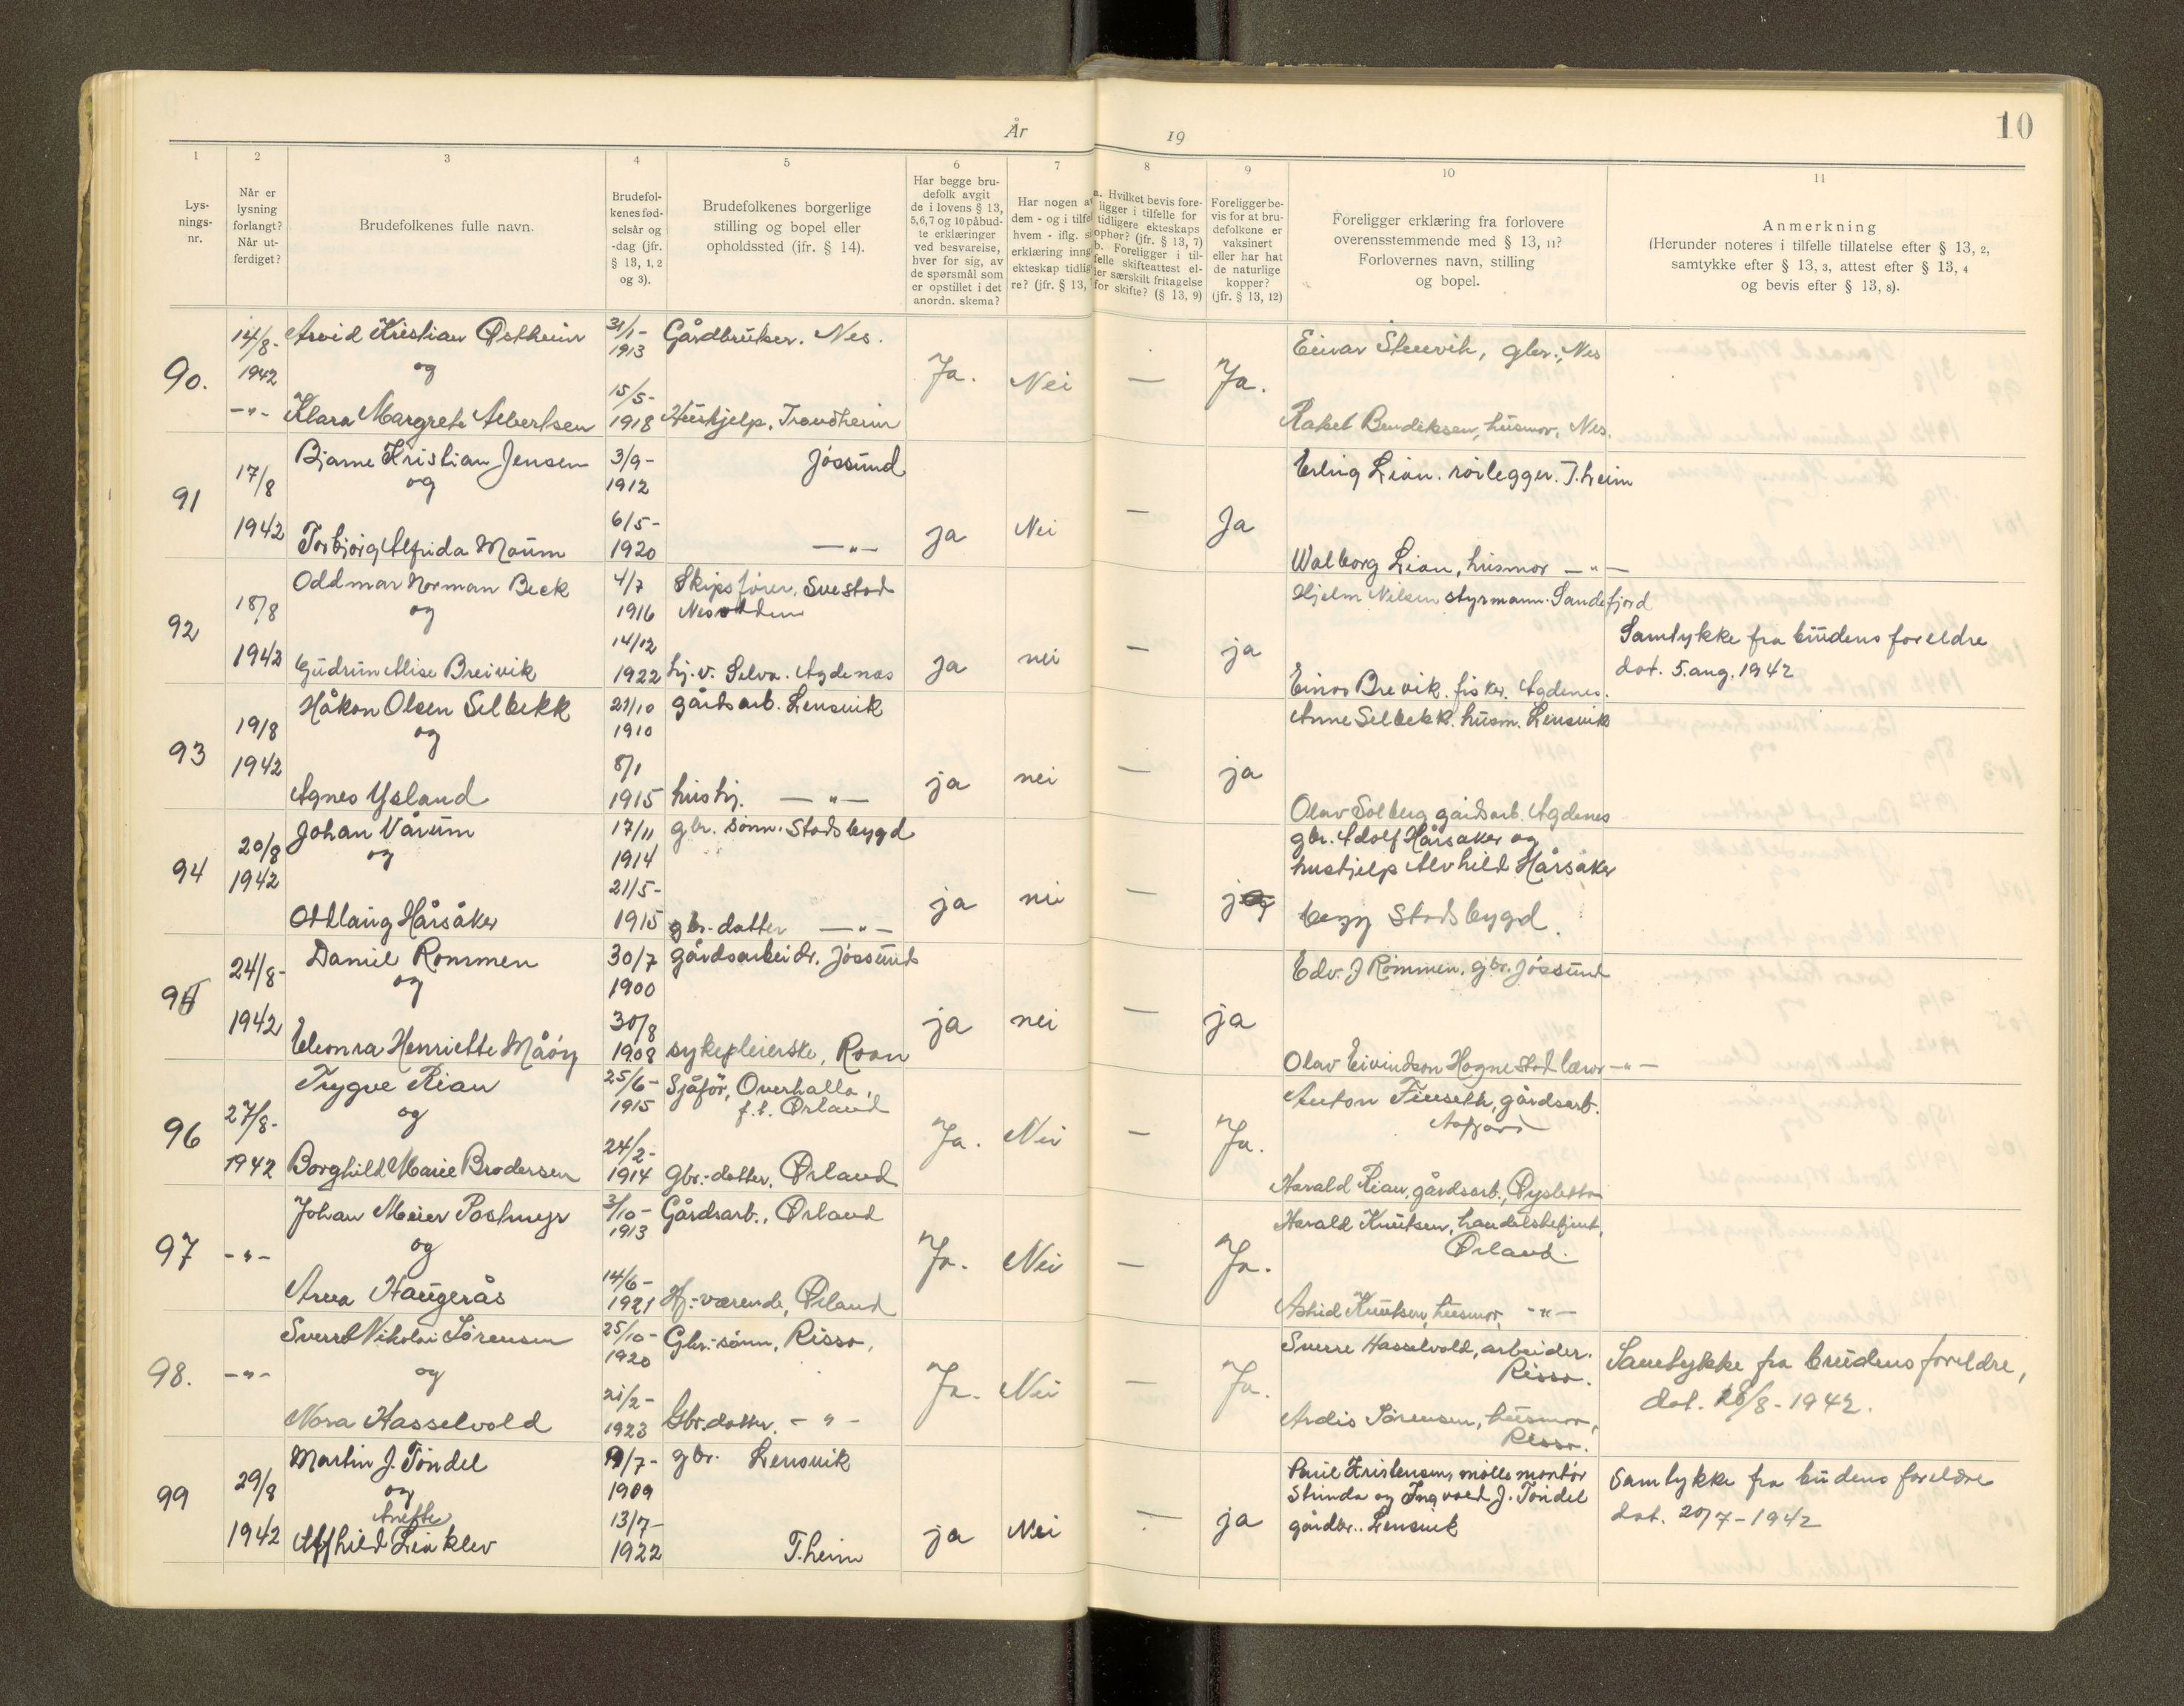 År 19
10
1
Lys-
nings-
nr.
2
Når er
lysning
forlangt?
Når ut-
ferdiget?
3
Brudefolkenes fulle navn.
4
Brudefol-
kenes fød-
selsår og
-dag (jfr.
§ 13, 1, 2
og 3).
5
Brudefolkenes borgerlige
stilling og bopel eller
opholdssted (jfr. § 14).
6
Har begge bru-
defolk avgit
de i lovens § 13,
5,6,7 og 10 påbud-
te erklæringer
ved besvarelse,
hver for sig, av
de spørsmål som
er opstillet i det
anordn. skema?
7
Har nogen a
dem - og i tilfel
hvem - iflg. s
erklæring inng
ekteskap tidlig
re? (jfr. § 13,
8
a. Hvilket bevis fore-
ligger i tilfelle for
tidligere ekteskaps
ophør? (jfr. § 13, 7)
b. Foreligger i til-
felle skifteattest el-
ler særskilt fritagelse
for skifte? (§ 13, 9)
9
Foreligger be-
vis for at bru-
defolkene er
vaksinert
eller har hat
de naturlige
kopper?
(jfr. § 13, 12)
10
Foreligger erklæring fra forlovere
overensstemmende med § 13, 11?
Forlovernes navn, stilling
og bopel.
11
Anmerkning
(Herunder noteres i tilfelle tillatelse efter § 13, 2,
samtykke efter § 13, 3, attest efter § 13, 4
og bevis efter § 13, 8).
90. 14/8- 1942 Arvid Kristian Østheim 31/1- 1913 Gårdbruker. Nes.
og Ja. Nei — Ja.
-"- Klara Margrete Albertsen 15/5- 1918 Hushjelp, Trondheim
Einar Stenvik, gbr., Nes
Rakel Bendiksen, husmor, Nes.
91 17/8 1942 Bjarne Kristian Jensen 3/9- 1912 Jössund
og
Torbjørg Alfrida Maum 6/5- 1920 —"— ja Nei — Ja
Erling Lian. rörlegger. T.heim
Walborg Lian, husmor —"—
92 18/8 1942 Oddmar Norman Beck 4/7 1916 Skipsförer. Svestad
og Nesodden
Gudrun Alise Breivik 14/12 1922 hj. v. Selva. Agdenes ja nei — ja
Hjelm Nilsen styrmann. Sandefjord
Einar Breivik. fisker. Agdenes.
Samtykke fra brudens foreldre
dat. 5. aug. 1942
93 19/8 1942 Håkon Olsen Selbekk 21/10 1910 gårdsarb. Lensvik
og
Agnes Ysland 8/1 1915 hushj. —"— ja nei — ja
Anne Selbekk. husm. Lensvik
Olav Solberg gårdsarb. Agdenes
94 20/8 1942 Johan Vårum 17/11 1914 gbr. sönn. Stadsbygd
og
Ottlaug Hårsåker 21/5- 1915 gbr.-datter —"— ja nei — ja
gbr. Adolf Hårsaker og
hushjelp Alvhild Hårsåker
begg Stadsbygd.
95 24/8- 1942 Daniel Rommen 30/7 1900 gårdsarbeider. Jössund
og
Eleonra Henriette Måöy 30/8 1908 sykepleierske, Roan ja nei — ja
Edv. J Rømmen. gbr. Jössund
Olav Eivindson Hognestad lærer —"—
96 27/8- 1942 Trygve Rian 25/6- 1915 Sjåför, Overhalla,
og f.t. Ørland Ja. Nei — Ja.
Borghild Marie Brodersen 24/2- 1914 Gbr.-datter, Ørland
Anton Finseth, gårdsarb.
Harald Rian, gårdsarb.,
97 -"- Johan Meier Postmyr 3/10- 1913 Gårdsarb., Ørland
og Ja. Nei — Ja.
Anna Haugerås 14/6- 1921 Hj.-værende, Ørland
Harald Knutsen, handelsbetjent,
Ørland.
Astrid Knutsen, husmor, -"-
98. -"- Sverre Nikolai Sörensen 25/10- 1920 Gbr.-sönn, Rissa,
og Ja. Nei — Ja.
Nora Hasselvold 21/2- 1923 Gbr.datter. -"-
Sverre Hasselvold, arbeider.
Rissa.
Ardis Sörensen, husmor,
Rissa.
Samtykke fra brudens foreldre,
dat. 26/8-1942.
99 29/8 1942 Martin J. Töndel 9/7- 1909 gbr. Lensvik
og
Anette
Alfhild Liaklev 13/7- 1922 T.heim ja Nei — ja
Paul Kristensen, möllemontör
Strinda og Ingvald J. Töndel
gårdbr.. Lensvik
Samtykke fra brudens foreldre
dat. 20/7-1942